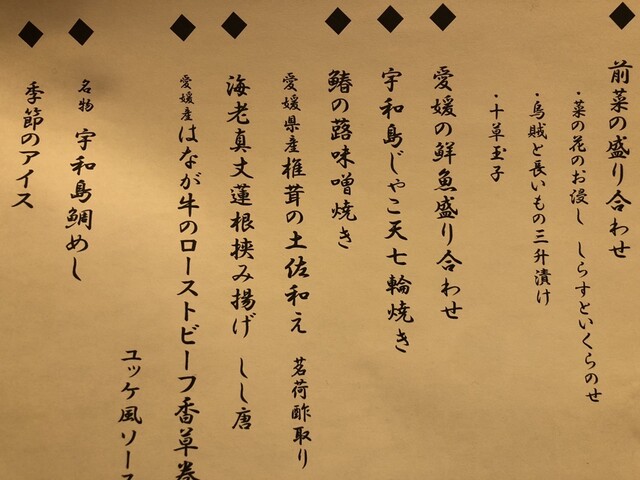 ◆ 前菜の盛り合わせ
・菜の花のお浸し しらすといくらのせ
・烏賊と長いもの三升漬け
・十草玉子
◆ 愛媛の鮮魚盛り合わせ
◆ 宇和島じゃこ天七輪焼き
◆ 鰆の蕗味噌焼き
愛媛県産椎茸の土佐和え 茗荷酢取り
◆ 海老真丈蓮根挟み揚げ しし唐
◆ 愛媛産 はなが牛のローストビーフ香草巻
ユッケ風ソース
◆ 名物 宇和島鯛めし
◆ 季節のアイス